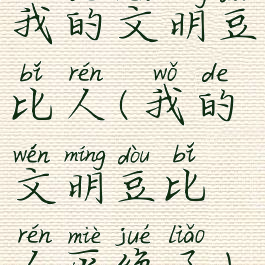 我的文明豆
bǐ rén wǒ de
比人(我的
wén míng dòu bǐ
文明豆比
rén miè jué liǎo